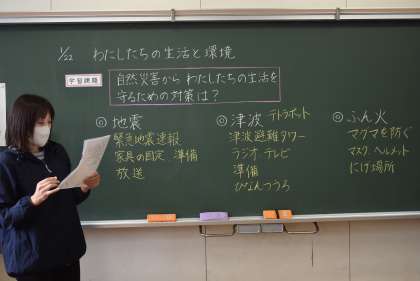 1/22 わたしたちの生活と環境
学習課題
自然災害から わたしたちの生活を
守るための対策は?
◎地震
緊急地震速報
家具の固定 準備
放送
◎津波 テトラポット
津波避難タワー
ラジオ テレビ
準備
◎ふん火
マグマを防ぐ
マスク ヘルメット
にげ場所